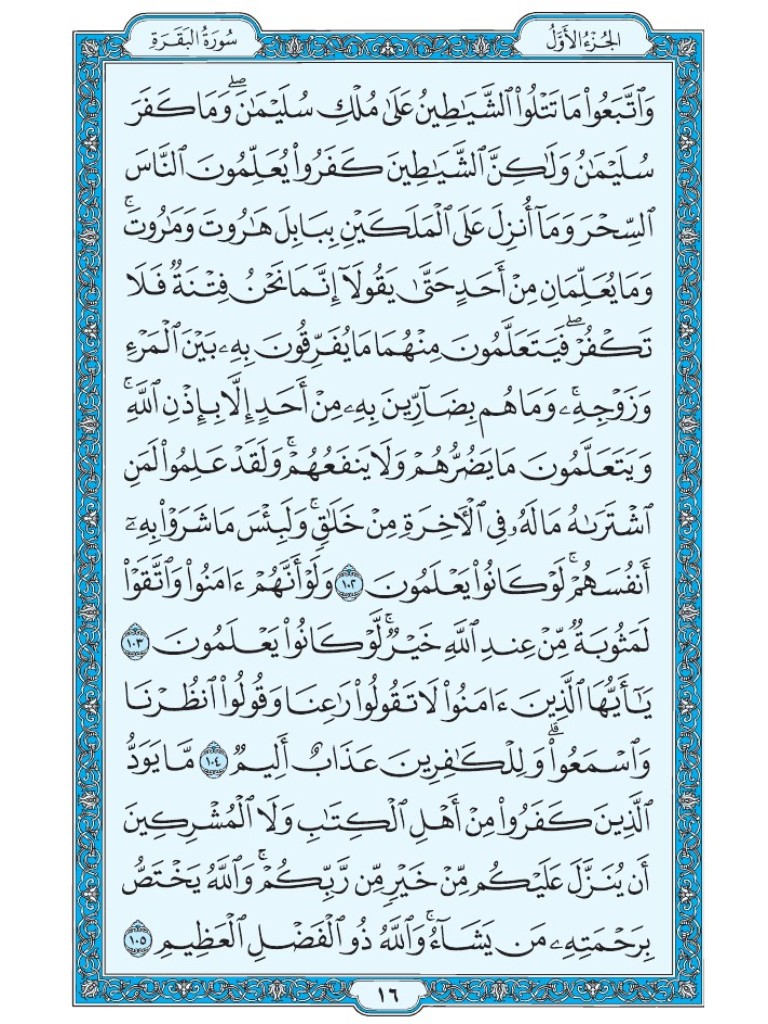 الجُزْءُ الأَوَّلُ
سُورَةُ البَقَرَةِ
وَٱتَّبَعُواْ مَا تَتْلُواْ ٱلشَّيَٰطِينُ عَلَىٰ مُلْكِ سُلَيْمَٰنَۖ وَمَا كَفَرَ
سُلَيْمَٰنُ وَلَٰكِنَّ ٱلشَّيَٰطِينَ كَفَرُواْ يُعَلِّمُونَ ٱلنَّاسَ
ٱلسِّحْرَ وَمَآ أُنزِلَ عَلَى ٱلْمَلَكَيْنِ بِبَابِلَ هَٰرُوتَ وَمَٰرُوتَۚ
وَمَا يُعَلِّمَانِ مِنْ أَحَدٍ حَتَّىٰ يَقُولَآ إِنَّمَا نَحْنُ فِتْنَةٌ فَلَا
تَكْفُرْۖ فَيَتَعَلَّمُونَ مِنْهُمَا مَا يُفَرِّقُونَ بِهِۦ بَيْنَ ٱلْمَرْءِ
وَزَوْجِهِۦۚ وَمَا هُم بِضَآرِّينَ بِهِۦ مِنْ أَحَدٍ إِلَّا بِإِذْنِ ٱللَّهِۚ
وَيَتَعَلَّمُونَ مَا يَضُرُّهُمْ وَلَا يَنفَعُهُمْۚ وَلَقَدْ عَلِمُواْ لَمَنِ
ٱشْتَرَىٰهُ مَا لَهُۥ فِى ٱلْءَاخِرَةِ مِنْ خَلَٰقٍۚ وَلَبِئْسَ مَا شَرَوْاْ بِهِۦٓ
أَنفُسَهُمْۚ لَوْ كَانُواْ يَعْلَمُونَ ١٠٢ وَلَوْ أَنَّهُمْ ءَامَنُواْ وَٱتَّقَوْاْ
لَمَثُوبَةٌ مِّنْ عِندِ ٱللَّهِ خَيْرٌۚ لَّوْ كَانُواْ يَعْلَمُونَ ١٠٣
يَٰٓأَيُّهَا ٱلَّذِينَ ءَامَنُواْ لَا تَقُولُواْ رَٰعِنَا وَقُولُواْ ٱنظُرْنَا
وَٱسْمَعُواْۗ وَلِلْكَٰفِرِينَ عَذَابٌ أَلِيمٌ ١٠٤ مَّا يَوَدُّ
ٱلَّذِينَ كَفَرُواْ مِنْ أَهْلِ ٱلْكِتَٰبِ وَلَا ٱلْمُشْرِكِينَ
أَن يُنَزَّلَ عَلَيْكُم مِّنْ خَيْرٍ مِّن رَّبِّكُمْۚ وَٱللَّهُ يَخْتَصُّ
بِرَحْمَتِهِۦ مَن يَشَآءُۚ وَٱللَّهُ ذُو ٱلْفَضْلِ ٱلْعَظِيمِ ١٠٥
١٦